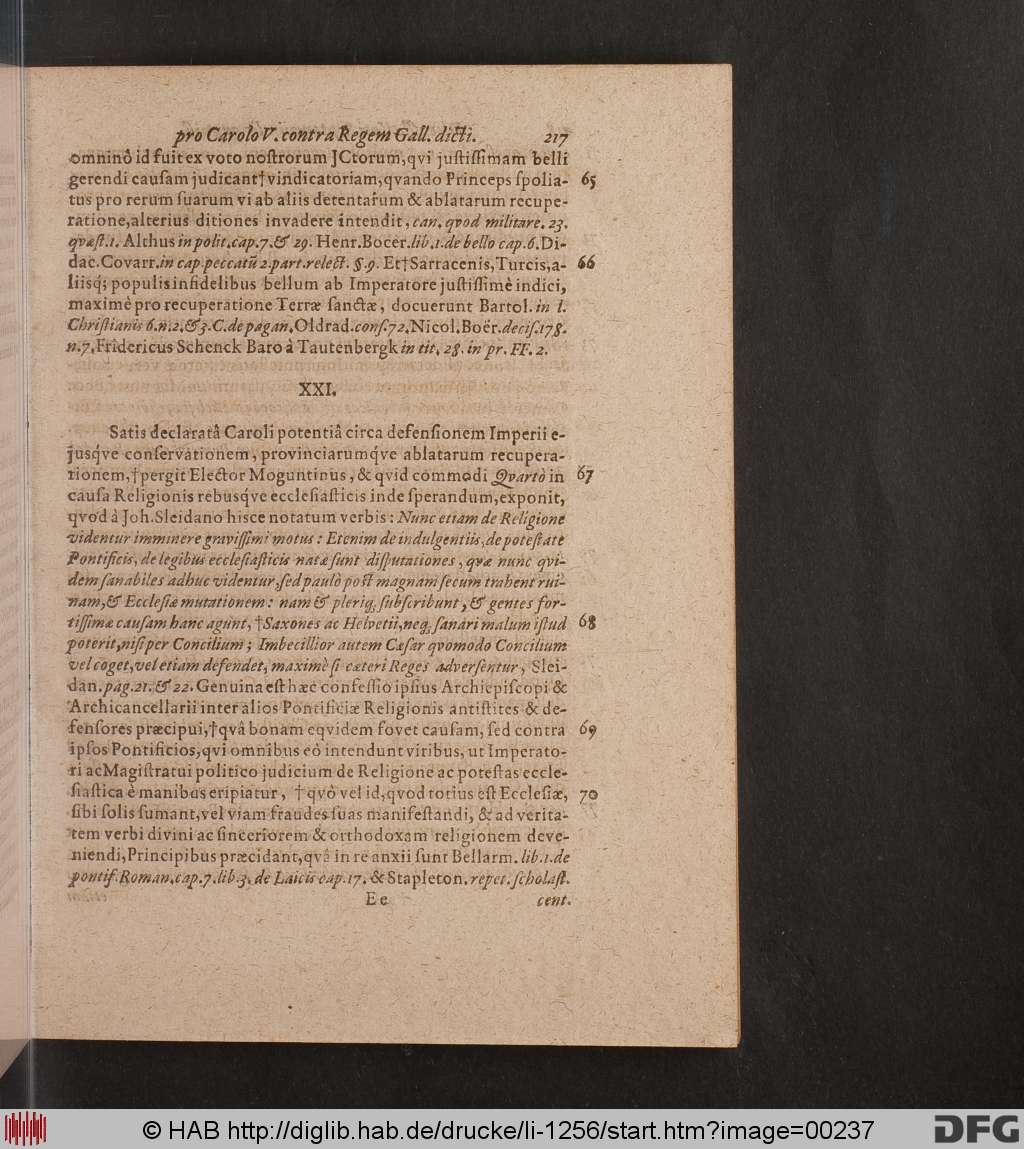 pro Carolo V. contra Regem Gall. dicti. 217
omninò id fuit ex voto nostrorum JCtorum, qvi justissimam belli
gerendi causam judicant † vindicatoriam, qvando Princeps spolia- 65
tus pro rerum suarum vi ab aliis detentarum & ablatarum recupe-
ratione, alterius ditiones invadere intendit, can. qvod militare. 23.
qvæst. 1. Althus in polit. cap. 7. & 29. Henr. Bocer. lib. 1. de bello cap. 6. Di-
dac. Covarr. in cap. peccatũ 2. part. relect. §. 9. Et † Sarracenis, Turcis, a- 66
liisq; populis infidelibus bellum ab Imperatore justissimè indici,
maximè pro recuperatione Terræ sanctæ, docuerunt Bartol. in l.
Christianis 6. n. 2. & 3. C. de pagan. Oldrad. cons. 72. Nicol. Boër. decis. 178.
n. 7. Fridericus Schenck Baro à Tautenbergk in tit. 28. in pr. FF. 2.
XXI.
Satis declaratâ Caroli potentiâ circa defensionem Imperii e-
jusqve conservationem, provinciarumqve ablatarum recupera-
tionem, † pergit Elector Moguntinus, & qvid commodi Qvartò in 67
causa Religionis rebusqve ecclesiasticis inde sperandum, exponit,
qvod à Joh. Sleidano hisce notatum verbis: Nunc etiam de Religione
videntur imminere gravissimi motus: Etenim de indulgentiis, de potestate
Pontificis, de legibus ecclesiasticis natæ sunt disputationes, qvæ nunc qvi-
dem sanabiles adhuc videntur, sed paulò post magnam secum trahent rui-
nam, & Ecclesiæ mutationem: nam & pleriq; subscribunt, & gentes for-
tissimæ causam hanc agunt, † Saxones ac Helvetii, neq; sanari malum istud 68
poterit, nisi per Concilium; Imbecillior autem Cæsar qvomodo Concilium
vel coget, vel etiam defendet, maximè si cæteri Reges adversentur, Slei-
dan. pag. 21. & 22. Genuina est hæc confessio ipsius Archiepiscopi &
Archicancellarii inter alios Pontificiæ Religionis antistites & de-
fensores præcipui, † qvâ bonam eqvidem fovet causam, sed contra 69
ipsos Pontificios, qvi omnibus eò intendunt viribus, ut Imperato-
ri ac Magistratui politico judicium de Religione ac potestas eccle-
siastica è manibus eripiatur, † qvò vel id, qvod totius est Ecclesiæ, 70
sibi solis sumant, vel viam fraudes suas manifestandi, & ad verita-
tem verbi divini ac sinceriorem & orthodoxam religionem deve-
niendi, Principibus præcidant, qvâ in re anxii sunt Bellarm. lib. 1. de
pontif. Roman. cap. 7. lib. 3. de Laicis cap. 17. & Stapleton. repet. scholast.
Ee cent.
© HAB http://diglib.hab.de/drucke/li-1256/start.htm?image=00237
DFG